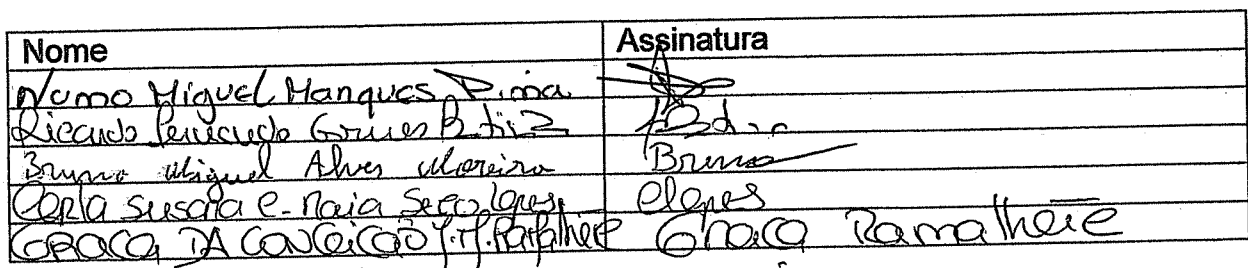 Nome Assinatura
Nuno Miguel Marques Pina
Ricardo Gomes
Bruno Miguel Alves Moreira Bruno
Carla Susana C. Maia Seco Lopes CLopes
GRAÇA DA CONCEIÇÃO Graça Ramalhete